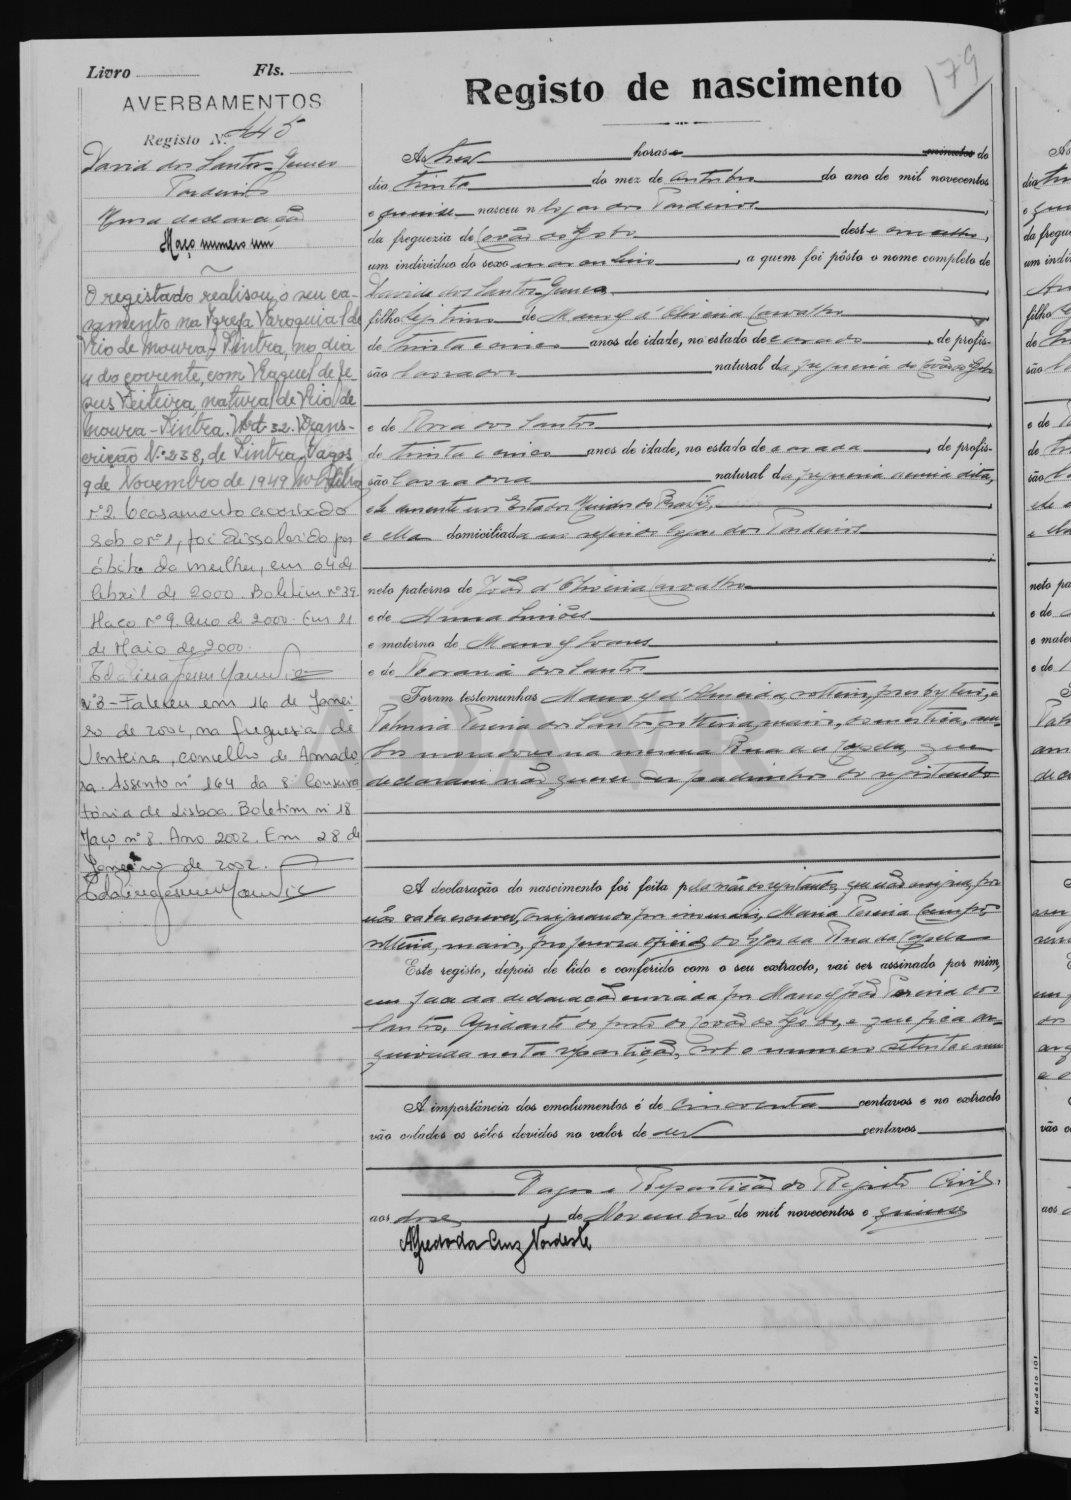 Livro Fls.
AVERBAMENTOS
Registo N.º 445
David dos Santos Gomes
Pardeiros
Uma declaração
Maço numero um
O registado realisou o seu ca-
samento na Igreja Paroquial de
Rio de Mouro - Sintra, no dia
do corrente, com Raquel de Je-
sus Feiteira, natural de Rio de
Mouro - Sintra. Art. 32. Trans-
crição N.º 238, de Sintra. Vagos,
9 de Novembro de 1949
nº 2 O casamento averbado
sob o nº 1, foi dissolvido por
óbito da mulher, em 04 de
Abril de 2000. Boletim nº 39
Maço nº 9. Ano de 2000. Em 11
de Maio de 2000.
Nº 3 - Faleceu em 16 de Janei-
ro de 2002, na freguesia de
Venteira, concelho de Amado
ra. Assento nº 164 da 8ª Conserva
tória de Lisboa. Boletim nº 18
Maço nº 8. Ano 2002. Em 28 de
Janeiro de 2002.
179
Registo de nascimento
Às tres horas e minutos do
dia trinta do mez de outubro do ano de mil novecentos
e quinze nasceu n o logar dos Pardeiros
da freguezia de Covão do Lobo deste concelho,
um individuo do sexo masculino, a quem foi pôsto o nome completo de
David dos Santos Gomes
filho legitimo de Manoel d'Oliveira Carvalho
de trinta e cinco anos de idade, no estado de casado, de profis-
são lavrador natural da freguesia de Covão do Lobo
e de Rosa dos Santos
de trinta e cinco anos de idade, no estado de casada, de profis-
são lavradora natural da freguesia acima dita,
ele ausente nos Estados Unidos do Brasil,
e ella domiciliada no referido logar dos Pardeiros
neto paterno de João d'Oliveira Carvalho
e de Anna Simões
e materno de Manoel Soares
e de Rosaria dos Santos
Foram testemunhas Manoel d'Almeida, solteiro, presbytero, e
Palmira Pereira dos Santos, solteira, maior, domestica, am-
bos moradores na mesma Rua da Capela, que
declararam não querer ser padrinhos do registando
A declaração do nascimento foi feita pela mãe do registando, que não assigna, por
não saber escrever, assignando por immais, Maria Pereira Campos,
solteira, maior, professora oficial do logar da Rua da Capella
Este registo, depois de lido e conferido com o seu extracto, vai ser assinado por mim,
em face da declaração enviada por Manoel João Pereira dos
Santos, Ajudante do posto de Covão do Lobo, e que fica ar-
quivada nesta repartição, sob o numero setenta e um
A importância dos emolumentos é de cincoenta centavos e no extracto
vão colados os sêlos devidos no valor de dez centavos
Vagos e Repartição do Registo Civil,
aos doze de Novembro de mil novecentos e quinze
Alfredo da Cruz Nordeste
Modelo 101